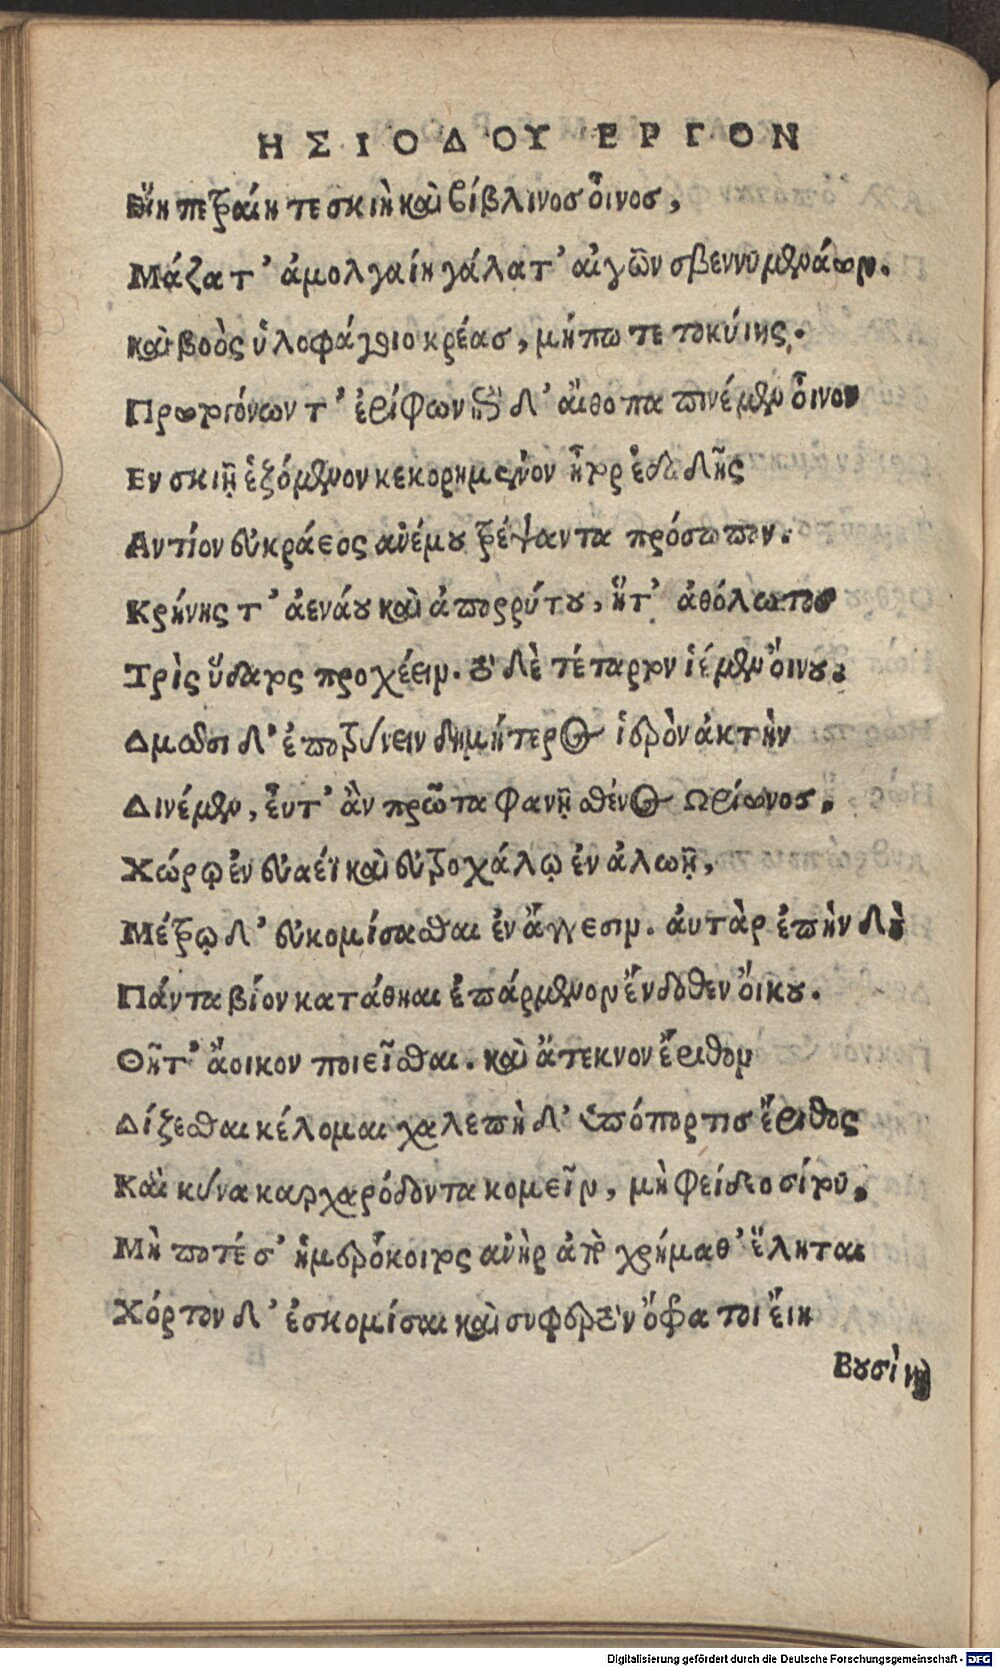 ΗΣΙΟΔΟΥ ΕΡΓΟΝ
Εἴη πετραίη τε σκιὴ καὶ βίβλινοσ οἶνοσ,
Μάζα τ' ἀμολγαίη γάλα τ' αἰγῶν σβεννυμενάων.
καὶ βοὸς ὑλοφάγοιο κρέασ, μήπω τε τοκύιης.
Πρωτογόνων τ' ἐρίφων ἐπὶ δ' αἴθοπα πινέμεν οἶνον
Εν σκιῇ ἑζόμενον κεκορημένον ἦτορ ἐδωδῆς
Αντίον εὐκράεος ἀνέμου τρέψαντα πρόσωπον.
Κρήνης τ' ἀενάου καὶ ἀπορρύτου, ἥτ' ἀθόλωτοσ
Τρὶς ὕδατος προχέειν. τὸ δὲ τέταρτον ἱέμεν ὄινου.
Δμωσὶ δ' ἐποτρύνειν δημήτερος ἱερὸν ἀκτὴν
Δινέμεν, ἐυτ' ἂν πρῶτα φανῇ σθένος Ωρίωνοσ.
Χώρῳ ἐν εὐαέϊ καὶ εὐτροχάλῳ ἐν ἀλωῇ,
Μέτρῳ δ' εὐκομίσασθαι ἐν ἄγγεσιν. ἀυτὰρ ἐπὴν δὴ
Πάντα βίον κατάθηαι ἐπάρμενον ἔνδοθεν ὄικου.
Θῆτ' ἄοικον ποιεῖσθαι. καὶ ἄτεκνον ἔριθον
Δίζεσθαι κέλομαι χαλεπὴ δ' ὑπόπορτισ ἔριθος
Καὶ κύνα καρχαρόδοντα κομεῖν, μὴ φείδεο σίτου.
Μὴ ποτέ σ' ἡμερόκοιτος ἀνὴρ ἀπὸ χρήμαθ' ἕληται
Χόρτον δ' ἐσκομίσαι καὶ συρφετὸν ὄφρα τοι ἔιη
Βουσὶ καὶ